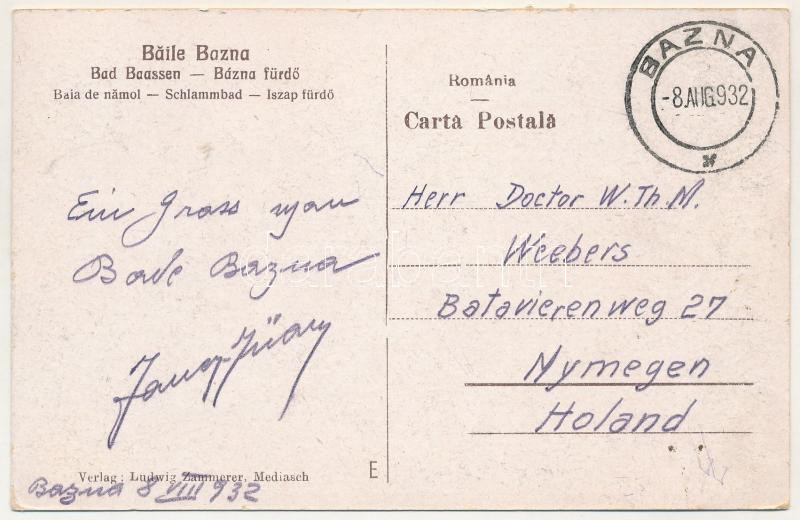 Băile Bazna
Bad Baassen — Bázna fürdő
Baia de nămol — Schlammbad — Iszap fürdő
Ein Grass
Bade Bazna
Verlag: Ludwig Zammerer, Mediasch
Bazna 8 VIII 932
E
România
Carta Postală
BAZNA
-8.AUG.932
Herr Doctor W. Th. M.
Weebers
Batavierenweg 27
Nymegen
Holand